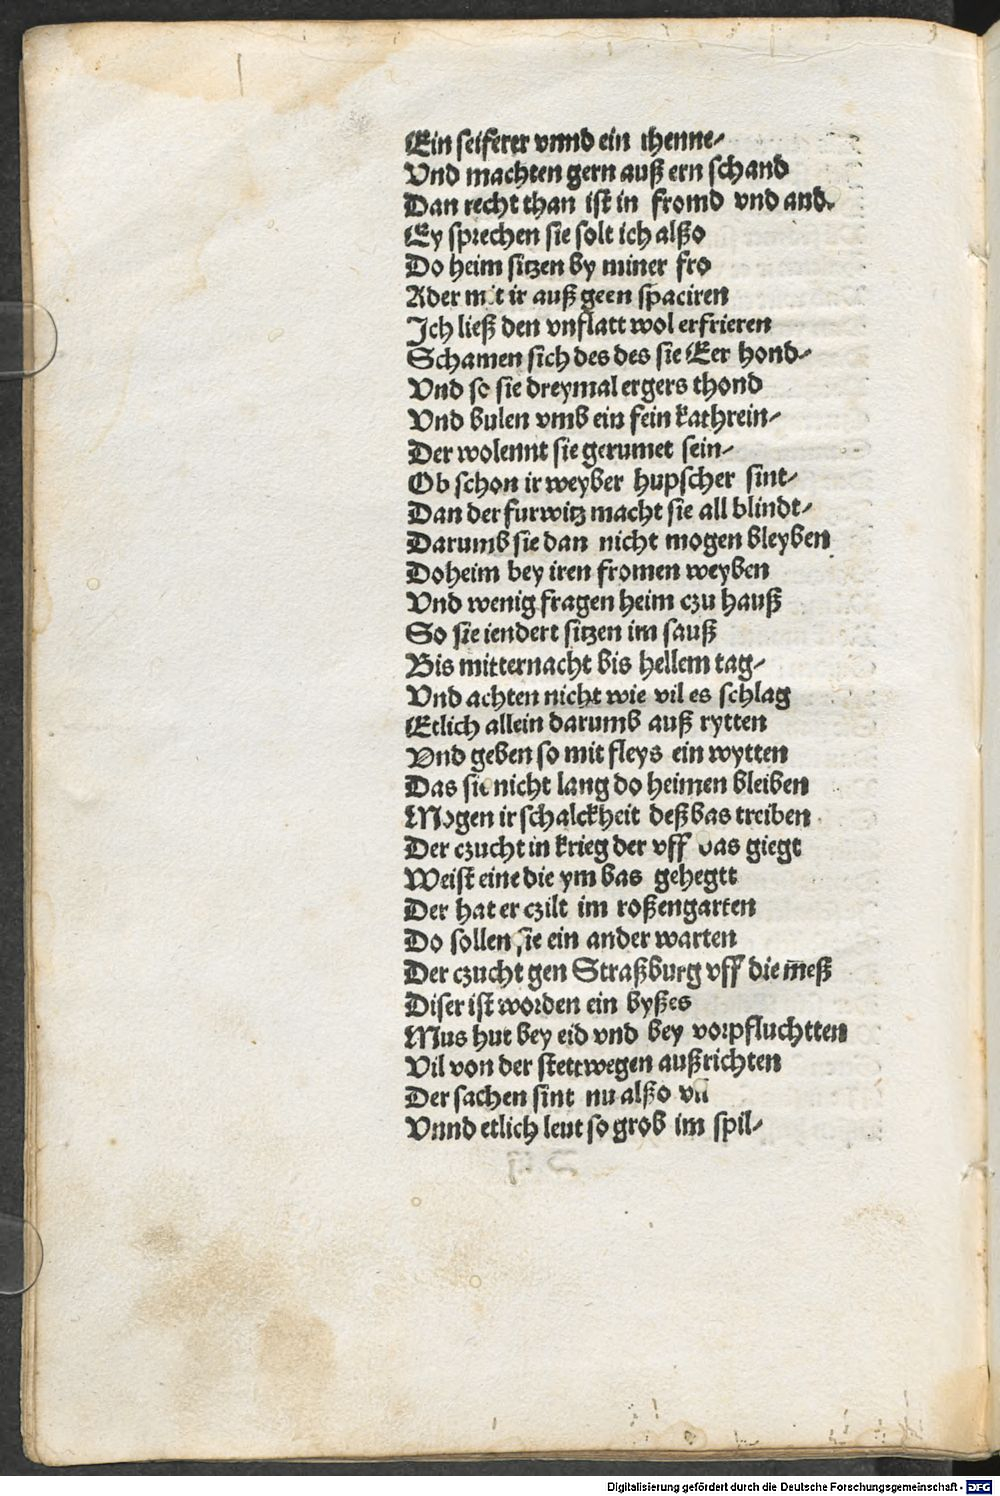 Ein seiferer vnnd ein thenne/
Vnd machten gern auß ern schand
Dan recht than ist in fromd vnd and.
Ey sprechen sie solt ich alßo
Do heim sitzen by miner fro
Ader mit ir auß geen spaciren
Ich ließ den vnflatt wol erfrieren
Schamen sich des des sie Eer hond/
Vnd so sie dreymal ergers thond
Vnd bulen vmb ein fein kathrein/
Der wolennt sie gerumet sein/
Ob schon ir weyber hupscher sint/
Dan der furwitz macht sie all blindt/
Darumb sie dan nicht mogen bleyben
Doheim bey iren fromen weyben
Vnd wenig fragen heim czu hauß
So sie iendert sitzen im sauß
Bis mitternacht bis hellem tag/
Vnd achten nicht wie vil es schlag
Etlich allein darumb auß rytten
Vnd geben so mit fleys ein wytten
Das sie nicht lang do heimen bleiben
Mogen ir schalckheit deß bas treiben
Der czucht in krieg der vff das giegt
Weist eine die ym bas gehegtt
Der hat er czilt im roßengarten
Do sollen sie ein ander warten
Der czucht gen Straßburg vff die m̄eß
Diser ist worden ein byßes
Mus hut bey eid vnd bey vorpfluchtten
Vil von der stett wegen außrichten
Der sachen sint nu alßo vil
Vnnd etlich leut so grob im spil/
Digitalisierung gefördert durch die Deutsche Forschungsgemeinschaft - DFG